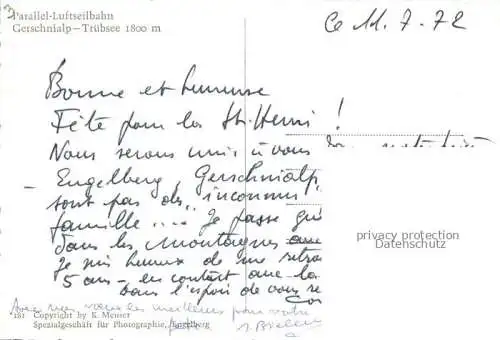 Parallel-Luftseilbahn
Gerschnialp—Trübsee 1800 m
Ce 11.7.72
Bonne et heureuse
Fête pour la St. Henri !
Nous serons unis à vous
Engelberg, Gerschnialp,
sont pas des inconnus
famille .... Je passe
dans les montagnes
Je suis heureux de me
5 ans - en contact avec
Dans l'espoir de vous
privacy protection
Datenschutz
Avec mes vœux les meilleurs pour votre
fête
181 Copyright by K. Meuser
Spezialgeschäft für Photographie, Engelberg